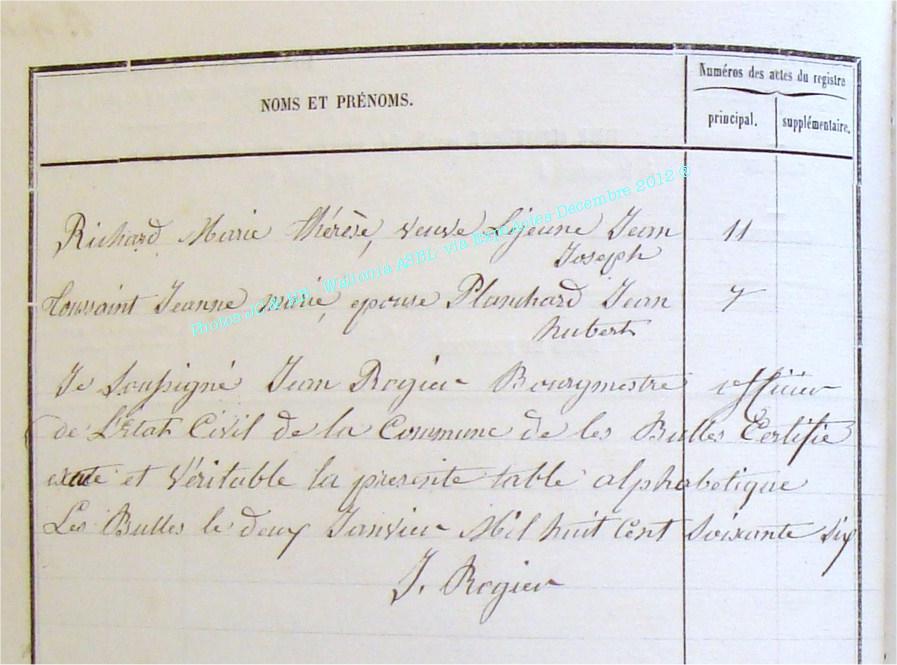 NOMS ET PRÉNOMS.
Numéros des actes du registre
principal. supplémentaire.
Richard Marie thérèse, veuve Lejeune Jean Joseph 11
Toussaint Jeanne marie, epouse Planchard Jean hubert 7
Je Soussigné Jean Rogier Bourgmestre officier
de L'Etat Civil de la Commune de les Bulles Certifie
exate et Véritable la presente table alphabetique
Les Bulles le deux Janvier Mil huit Cent Soixante Six
J. Rogier
Wallonia ASBL via ExpoActes Decembre 2012 ®